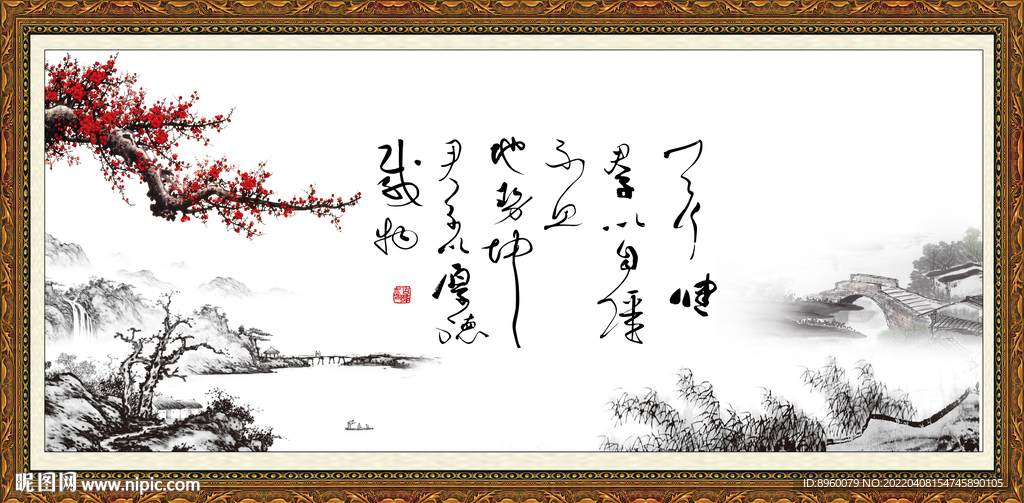 天行健
君子以自强
不息
地势坤
君子以厚德
载物
昵图网 www.nipic.com
ID:8960079 NO:20220408154745890105